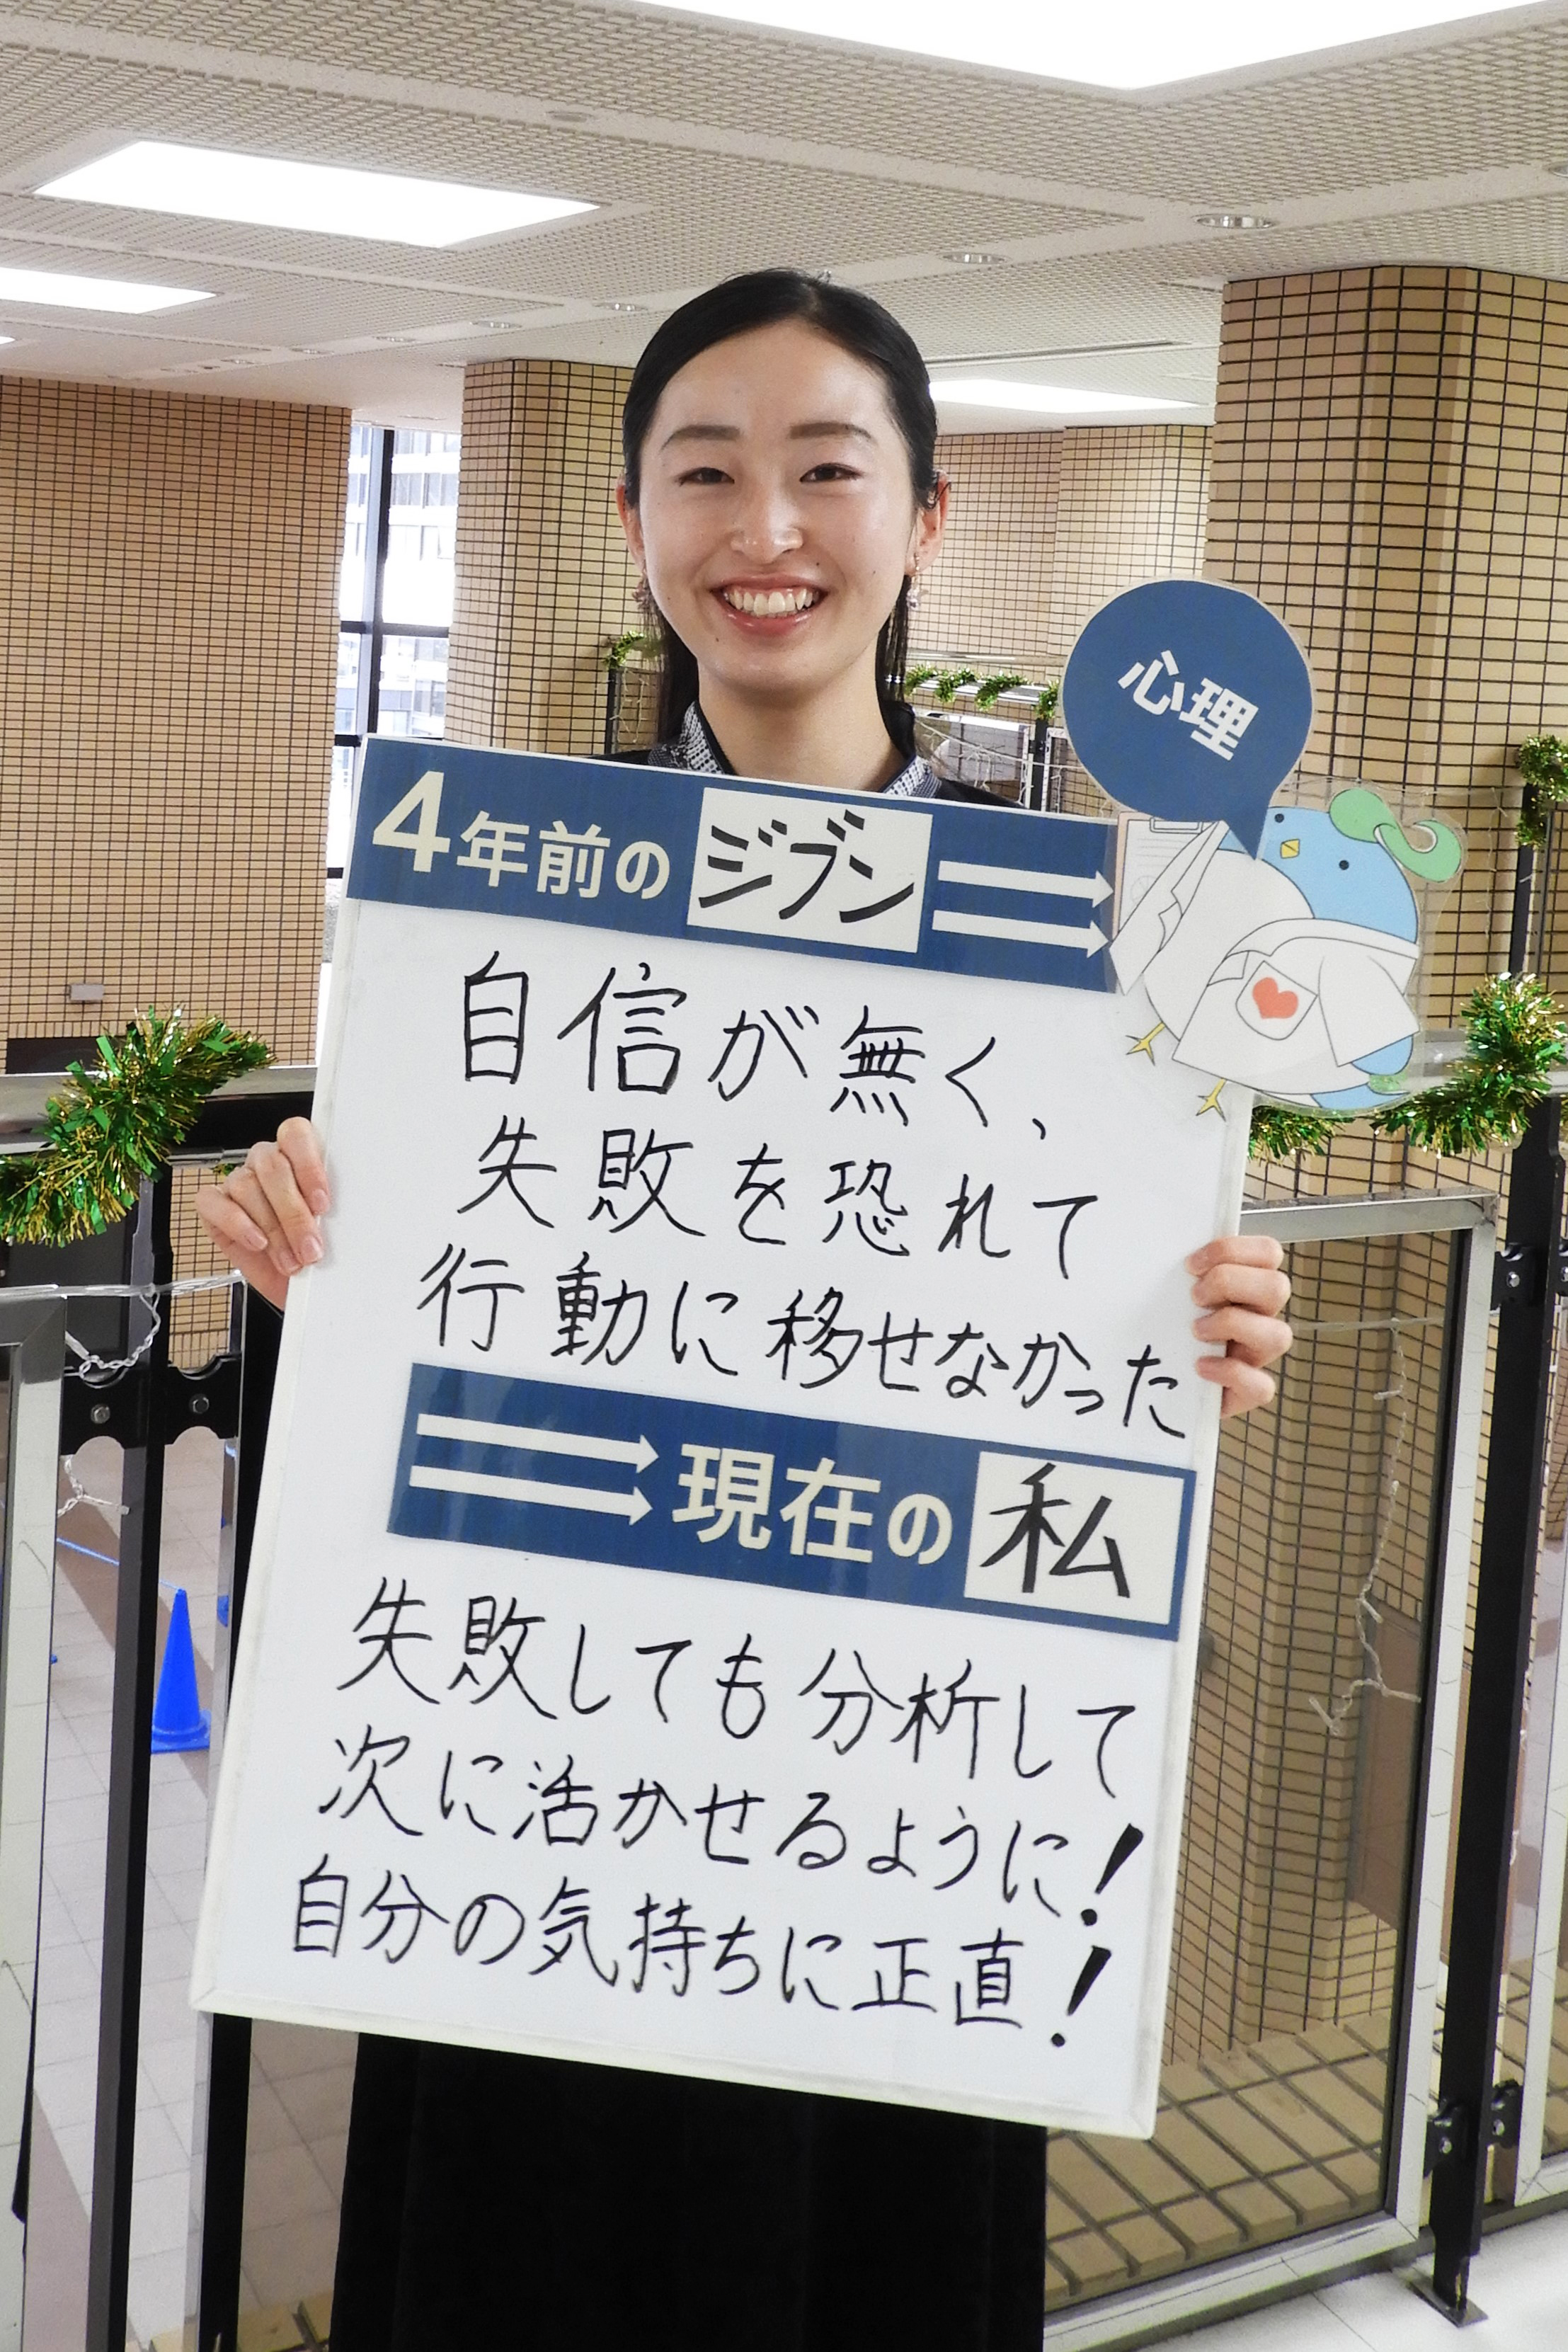 心理
4年前のジブン
自信が無く、
失敗を恐れて
行動に移せなかった
現在の私
失敗しても分析して
次に活かせるように!
自分の気持ちに正直!